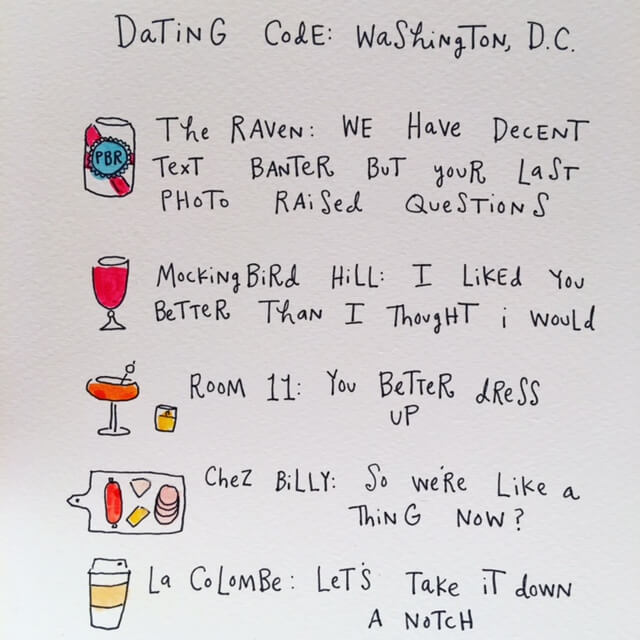 DaTiNG CodE: WaShingTON, D.C.
PBR
The RAVEN: WE Have DECENT
TexT BANTER BuT youR LaST
PHoTo RAiSed QueSTiONS
MockingBiRd HiLL: I LiKEd You
BeTTeR ThaN I ThoughT i would
Room 11: You BeTTeR dReSS
UP
CheZ BiLLY: So we're Like a
ThiNG Now?
La CoLomBe: LeT's Take iT down
A NoTCH